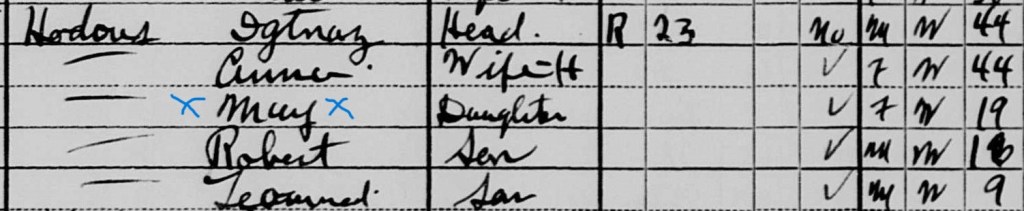 Hodous Igtnaz Head. R 23 No M W 44
— Anna Wife-H ✓ F W 44
— x May x Daughter ✓ F W 19
— Robert Son ✓ M W 18
— Leonard Son ✓ M W 9